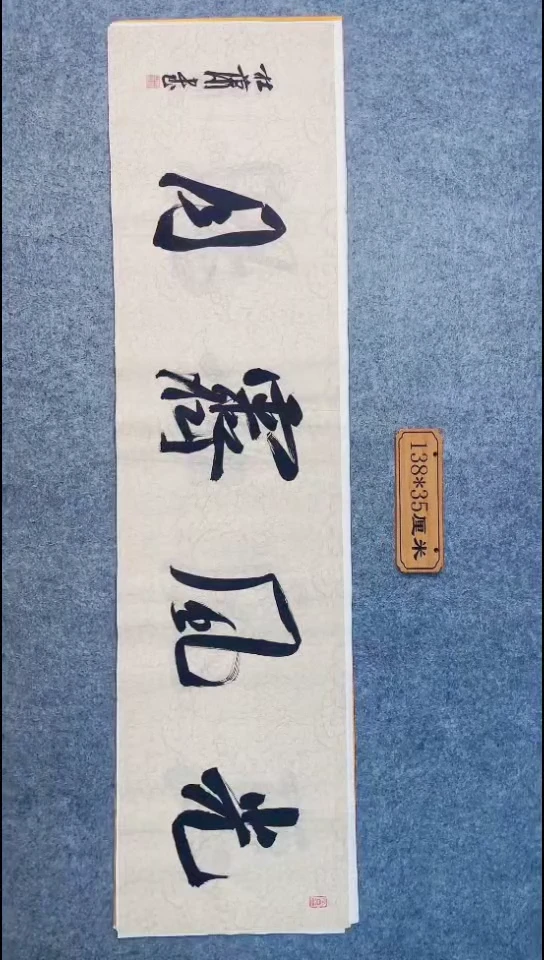 光風霽月
138*35厘米